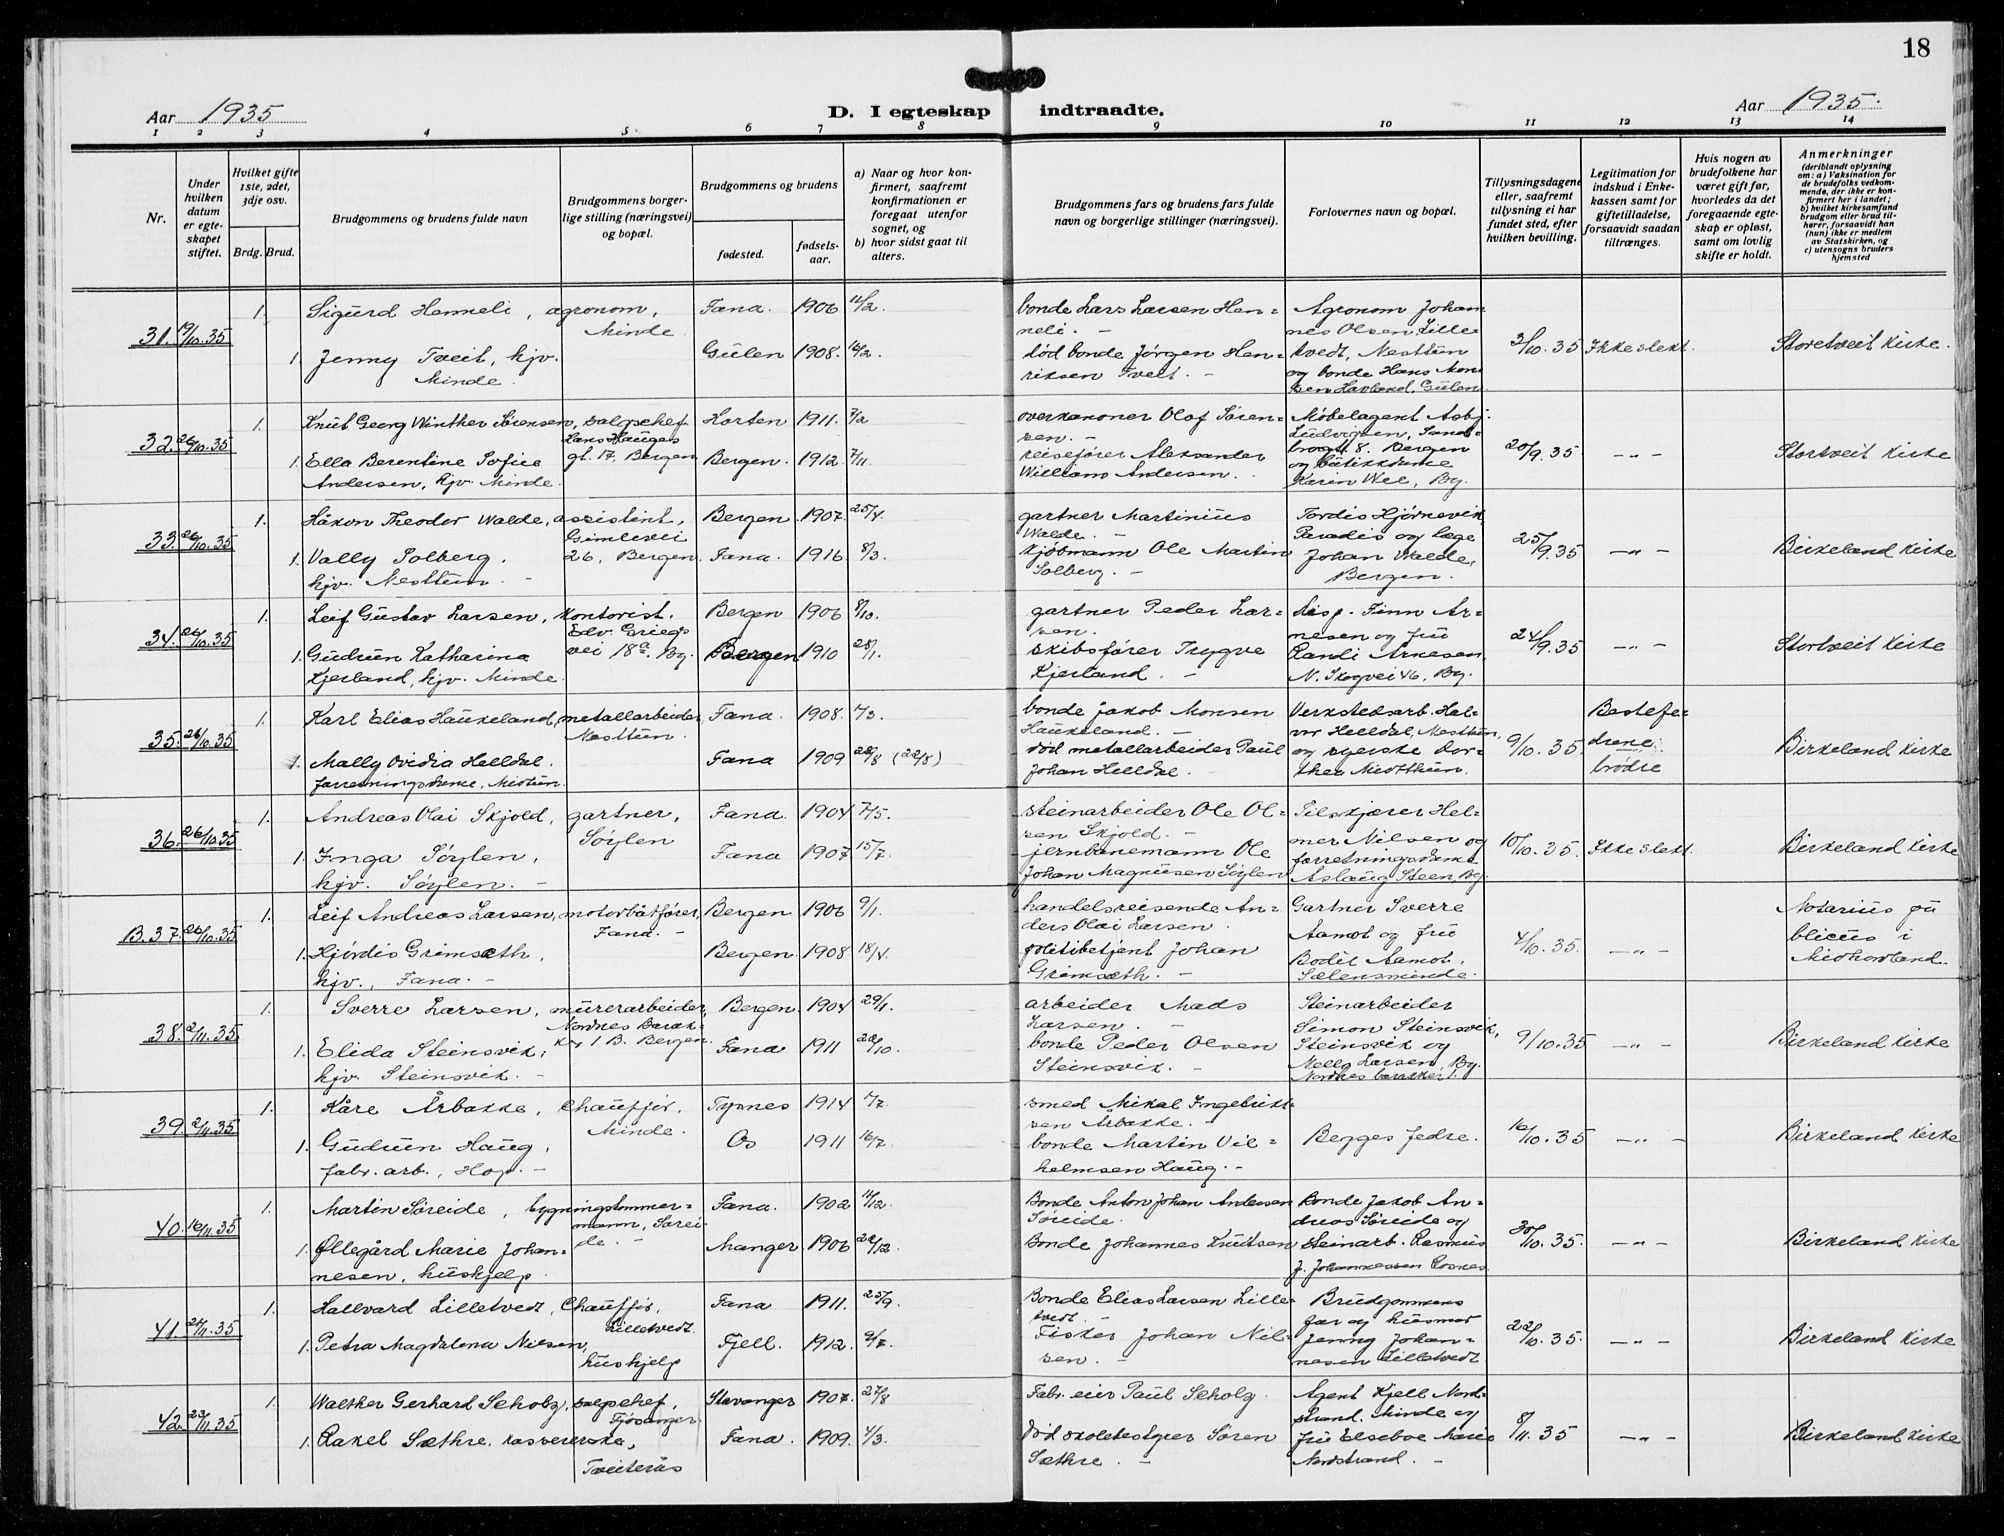 18
Aar 1935
D. I egteskap indtraadte.
Aar 1935.
1 2 3 4 5 6 7 8 9 10 11 12 13 14
Nr.
Under hvilken datum er egteskapet stiftet.
Hvilket gifte 1ste, 2det, 3dje osv.
Brdg. Brud.
Brudgommens og brudens fulde navn
Brudgommens borgerlige stilling (næringsvei) og bopæl.
Brudgommens og brudens
fødested.
fødselsaar.
a) Naar og hvor konfirmert, saafremt konfirmationen er foregaat utenfor sognet, og
b) hvor sidst gaat til alters.
Brudgommens fars og brudens fars fulde navn og borgerlige stillinger (næringsvei).
Forlovernes navn og bopæl.
Tillysningsdagene eller, saafremt tillysning ei har fundet sted, efter hvilken bevilling.
Legitimation for indskud i Enkekassen samt for giftetilladelse, forsaavidt saadan tiltrænges.
Hvis nogen av brudefolkene har været gift før, hvorledes da det foregaaende egteskap er opløst, samt om lovlig skifte er holdt.
Anmerkninger
(deriblandt oplysning om: a) Vaksination for de brudefolks vedkommende, der ikke er konfirmert her i landet;
b) hvilket kirkesamfund brudgom eller brud tilhører, forsaavidt han (hun) ikke er medlem av Statskirken, og
c) utensogns bruders hjemsted
31. 19/10.35 1. Sigurd Henneli, agronom, Minde. Fana. 1906 11/2. bonde Lars Larsen Henneli. -
1. Jenny Tveit, hjv. Minde. Gulen 1908. 16/2. død bonde Jørgen Henriksen Tveit. -
Agronom Johannes Olsen Lilletvedt, Nesttun og bonde Hans Monsen Havland, Gulen. 3/10.35 Ikke slekt. Storetveit kirke.
32. 26/10.35 1. Knut Georg Winther Sørensen, salgschef Hans Hauges gt. 17, Bergen Horten 1911. 7/2 overkanoner Olaf Sørensen. -
1. Ella Berentine Sofie Andersen, hjv. Minde. Bergen. 1912 7/11. reisefører Aleksander Williams Andersen.
Møbelagent Asbj. Ludvigsen, 8. Bergen og butikkdame Karen Wee, Bg. 20/9.35 -"- Stortveit kirke
33. 26/10.35 1. Håkon Theodor Walde, assistent, Gimlevei 26, Bergen. Bergen 1907. 25/4. gartner Martinius Walde. -
1. Vally Solberg, hjv. Nesttun - Fana. 1916 8/3. Kjøbmann Ole Martin Solberg. -
Tordis Hjørnevik, Paradis og læge Johan Walde, Bergen. 25/9.35 -"- Birkeland kirke
34. 26/10.35 1. Leif Gustav Larsen, kontorist. Edv. Griegs vei 18a. Bg. Bergen 1906 8/10. gartner Peder Larsen.
1. Gudrun Katharina Kjerland, hjv. Minde. Bergen 1910 28/1. skibsfører Trygve Kjerland. -
Disp. Finn Arnesen og fru Randi Arnesen, N. Skogvei 46, Bg. 24/9.35 -"- Stortveit kirke
35. 26/10.35 1. Karl Elias Haukeland, metallarbeider, Nesttun. Fana. 1908. 1/3. bonde Jakob Monsen Haukeland. -
1. Mally Ovidia Helldal. forretningsdame, Midtun. Fana 1909 28/8 (22/8) død metallarbeider Paul Johan Helldal. -
Verkstedsarb. Helvor Helldal, Nesttun, og syerske Dorthea Midtthun. 9/10.35 Bestefedrene brødre Birkeland kirke
36. 26/10.35 1. Andreas Olai Skjold, gartner, Søylen Fana. 1904 7/5. steinarbeider Ole Olsen Skjold. -
1. Inga Søylen, hjv. Søylen. - Fana 1907 15/7. jernbanemann Ole Johan Magnusen Søylen
Tilskjærer Helmer Nilsen og forretningsdame Aslaug Steen, Bg. 10/10.35. Ikke slekt. Birkeland kirke
B.37. 26/10.35 1. Leif Andreas Larsen, motorbåtfører, Fana. - Bergen 1906 9/1. handelsreisende Anders Olai Larsen.
1. Hjørdis Grimsæth, hjv., Fana. - Bergen. 1908 18/4. politibetjent Johan Grimsæth. -
Gartner Sverre Aamot og fru Bodil Aamot, Sælensminde. 4/10.35. -"- Notarius publicus i Midhordland.
38. 2/11.35 1. Sverre Larsen, murerarbeider, Nordnes Barakker 1 B. Bergen. Bergen. 1904 29/1. arbeider Mads Larsen. -
1. Elida Steinsvik, hjv. Steinsvik. - Fana 1911 22/10. bonde Peder Olsen Steinsvik. -
Steinarbeider Simon Steinsvik, Steinsvik og Nelly Larsen, Bg. Nordnes barakker 1. 9/10.35 -"- Birkeland kirke
39. 2/11.35 1. Kåre Årbakke, Chauffør, Minde. Tysnes 1914 4/7. smed Mikal Ingebriktsen Årbakke. -
1. Gudrun Haug, fabr. arb., Hop. - Os 1911 16/7. bonde Martin Vilhelmsen Haug. -
Begges fedre. 16/10.35 -"- Birkeland kirke
40. 16/11.35 1. Martin Søreide, bygningstømmermann, Søreide. - Fana. 1902 14/12. Bonde Anton Johan Andersen Søreide.
1. Øllegård Marie Johannesen, hushjelp. Manger 1906 22/12. Bonde Johannes Knutsen
Bonde Jakob Andreas Søreide og steinarb. Rasmus J. Johannessen Rosnes. 30/10.35. -"- Birkeland kirke
41. 24/11.35 1. Hallvard Lilletvedt, Chauffør, Lilletvedt. Fana 1911. 25/9. Bonde Elias Larsen Lilletvedt. -
1. Petra Magdalena Nilsen, hushjelp Fjell. 1912. 2/7. Fisker Johan Nilsen. -
Brudgommens far og husmor Jenny Johannesen Lilletvedt. 22/10.35. -"- Birkeland kirke
42. 23/11.35 1. Walther Gerhard Scholz, salgschef, Fjøsanger. Stavanger 1907. 27/8 Fabr. eier Paul Scholz.
1. Rakel Sæthre. kassererske, Tveiterås Fana. 1909. 4/3. Død skolebestyrer Søren Sæthre. -
Agent Kjell Nordstrand, Minde og fru Elsebve Marie Nordstrand. - 8/11.35 -"- Birkeland kirke